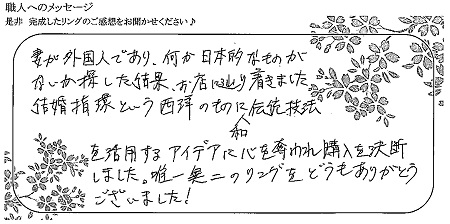 職人へのメッセージ
是非 完成したリングのご感想をお聞かせください♪
妻が外国人であり、何か日本的なものが
ないか探した結果、お店に辿り着きました
結婚指環という西洋のものに和伝統技法
を活用するアイデアに心を奪われ購入を決断
しました。唯一無二のリングをどうもありがとう
ございました!